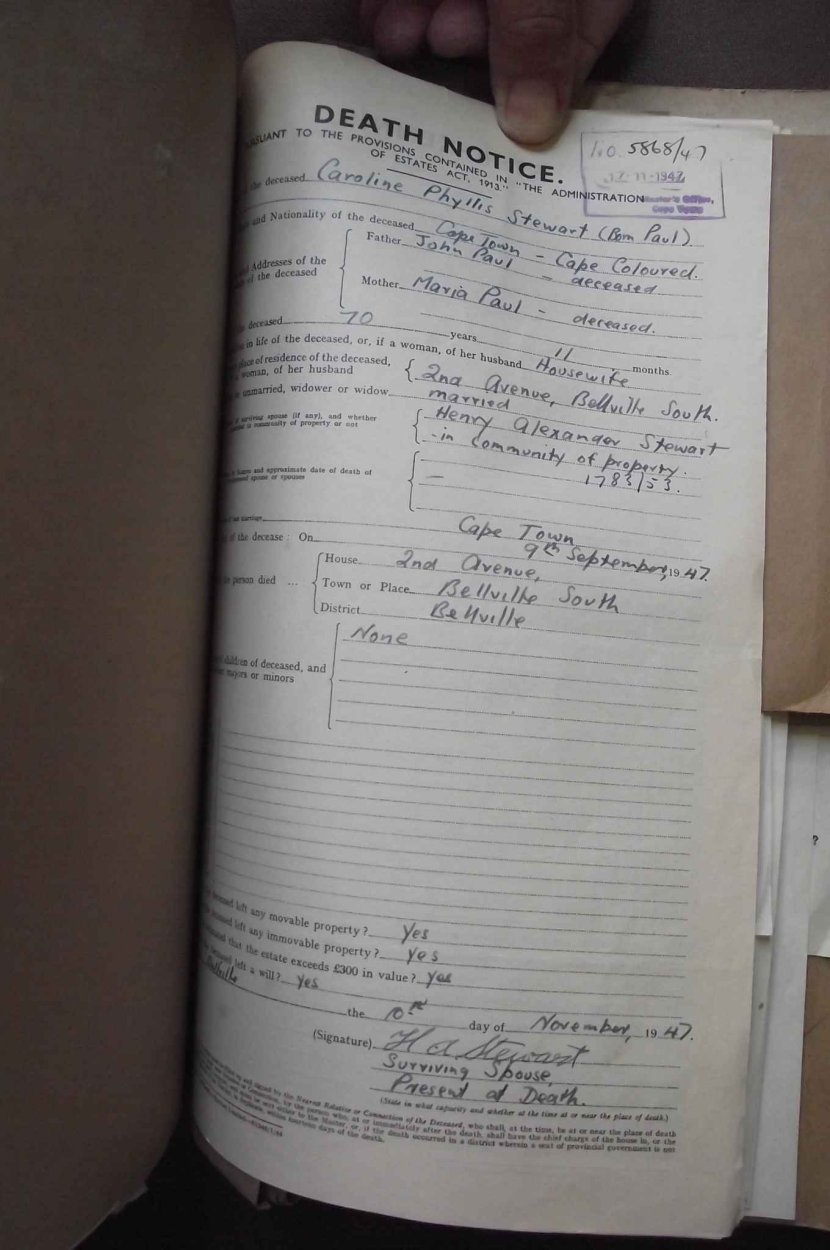 DEATH NOTICE.
No. 5868/47
TO THE PROVISIONS CONTAINED IN "THE ADMINISTRATION
OF ESTATES ACT, 1913."
12-11-1947
Master's Office,
Cape Town
the deceased Caroline Phyllis Stewart (Born Paul)
and Nationality of the deceased Cape Town - Cape Coloured.
Addresses of the
of the deceased
Father John Paul - deceased
Mother Maria Paul - deceased.
deceased 70 years 11 months
in life of the deceased, or, if a woman, of her husband Housewife
place of residence of the deceased,
woman, of her husband
2nd Avenue, Bellville South.
unmarried, widower or widow married
surviving spouse (if any), and whether
in community of property or not
Henry Alexander Stewart
- in community of property.
1783/53.
names and approximate date of death of
spouse or spouses
-
marriage Cape Town
of the decease: On 9th September, 1947.
person died ...
House 2nd Avenue,
Town or Place Bellville South
District Bellville
children of deceased, and
majors or minors
None
deceased left any movable property? Yes
deceased left any immovable property? Yes
that the estate exceeds £300 in value? Yes
deceased left a will? Yes
Bellville the 10th day of November, 1947.
(Signature) H A Stewart
Surviving Spouse,
Present at Death.
(State in what capacity and whether at the time at or near the place of death.)
signed by the Nearest Relative or Connection of the Deceased, who shall, at the time, be at or near the place of death
by the person who, at or immediately after the death, shall have the chief charge of the house in, or the
to the Master, or, if the death occurred in a district wherein a seat of provincial government is not
fourteen days of the death.